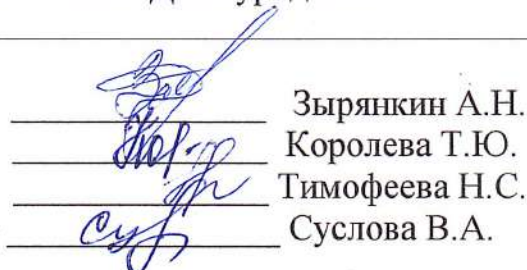 Зырянкин А.Н.
Королева Т.Ю.
Тимофеева Н.С.
Суслова В.А.